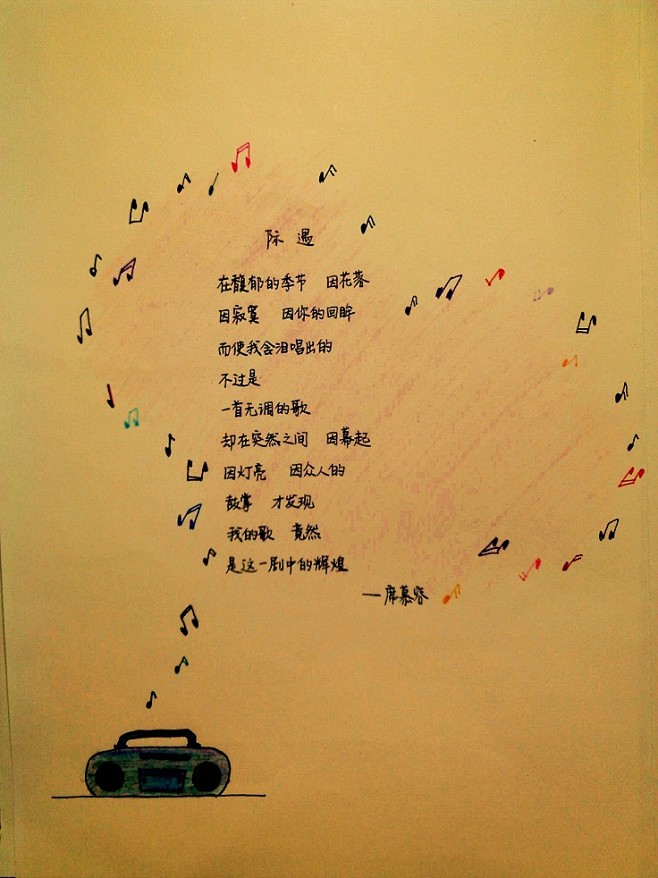 际遇
在馥郁的季节 因花落
因寂寞 因你的回眸
而使我含泪唱出的
不过是
一首无调的歌
却在突然之间 因幕起
因灯亮 因众人的
鼓掌 才发现
我的歌 竟然
是这一剧中的辉煌
—席慕容